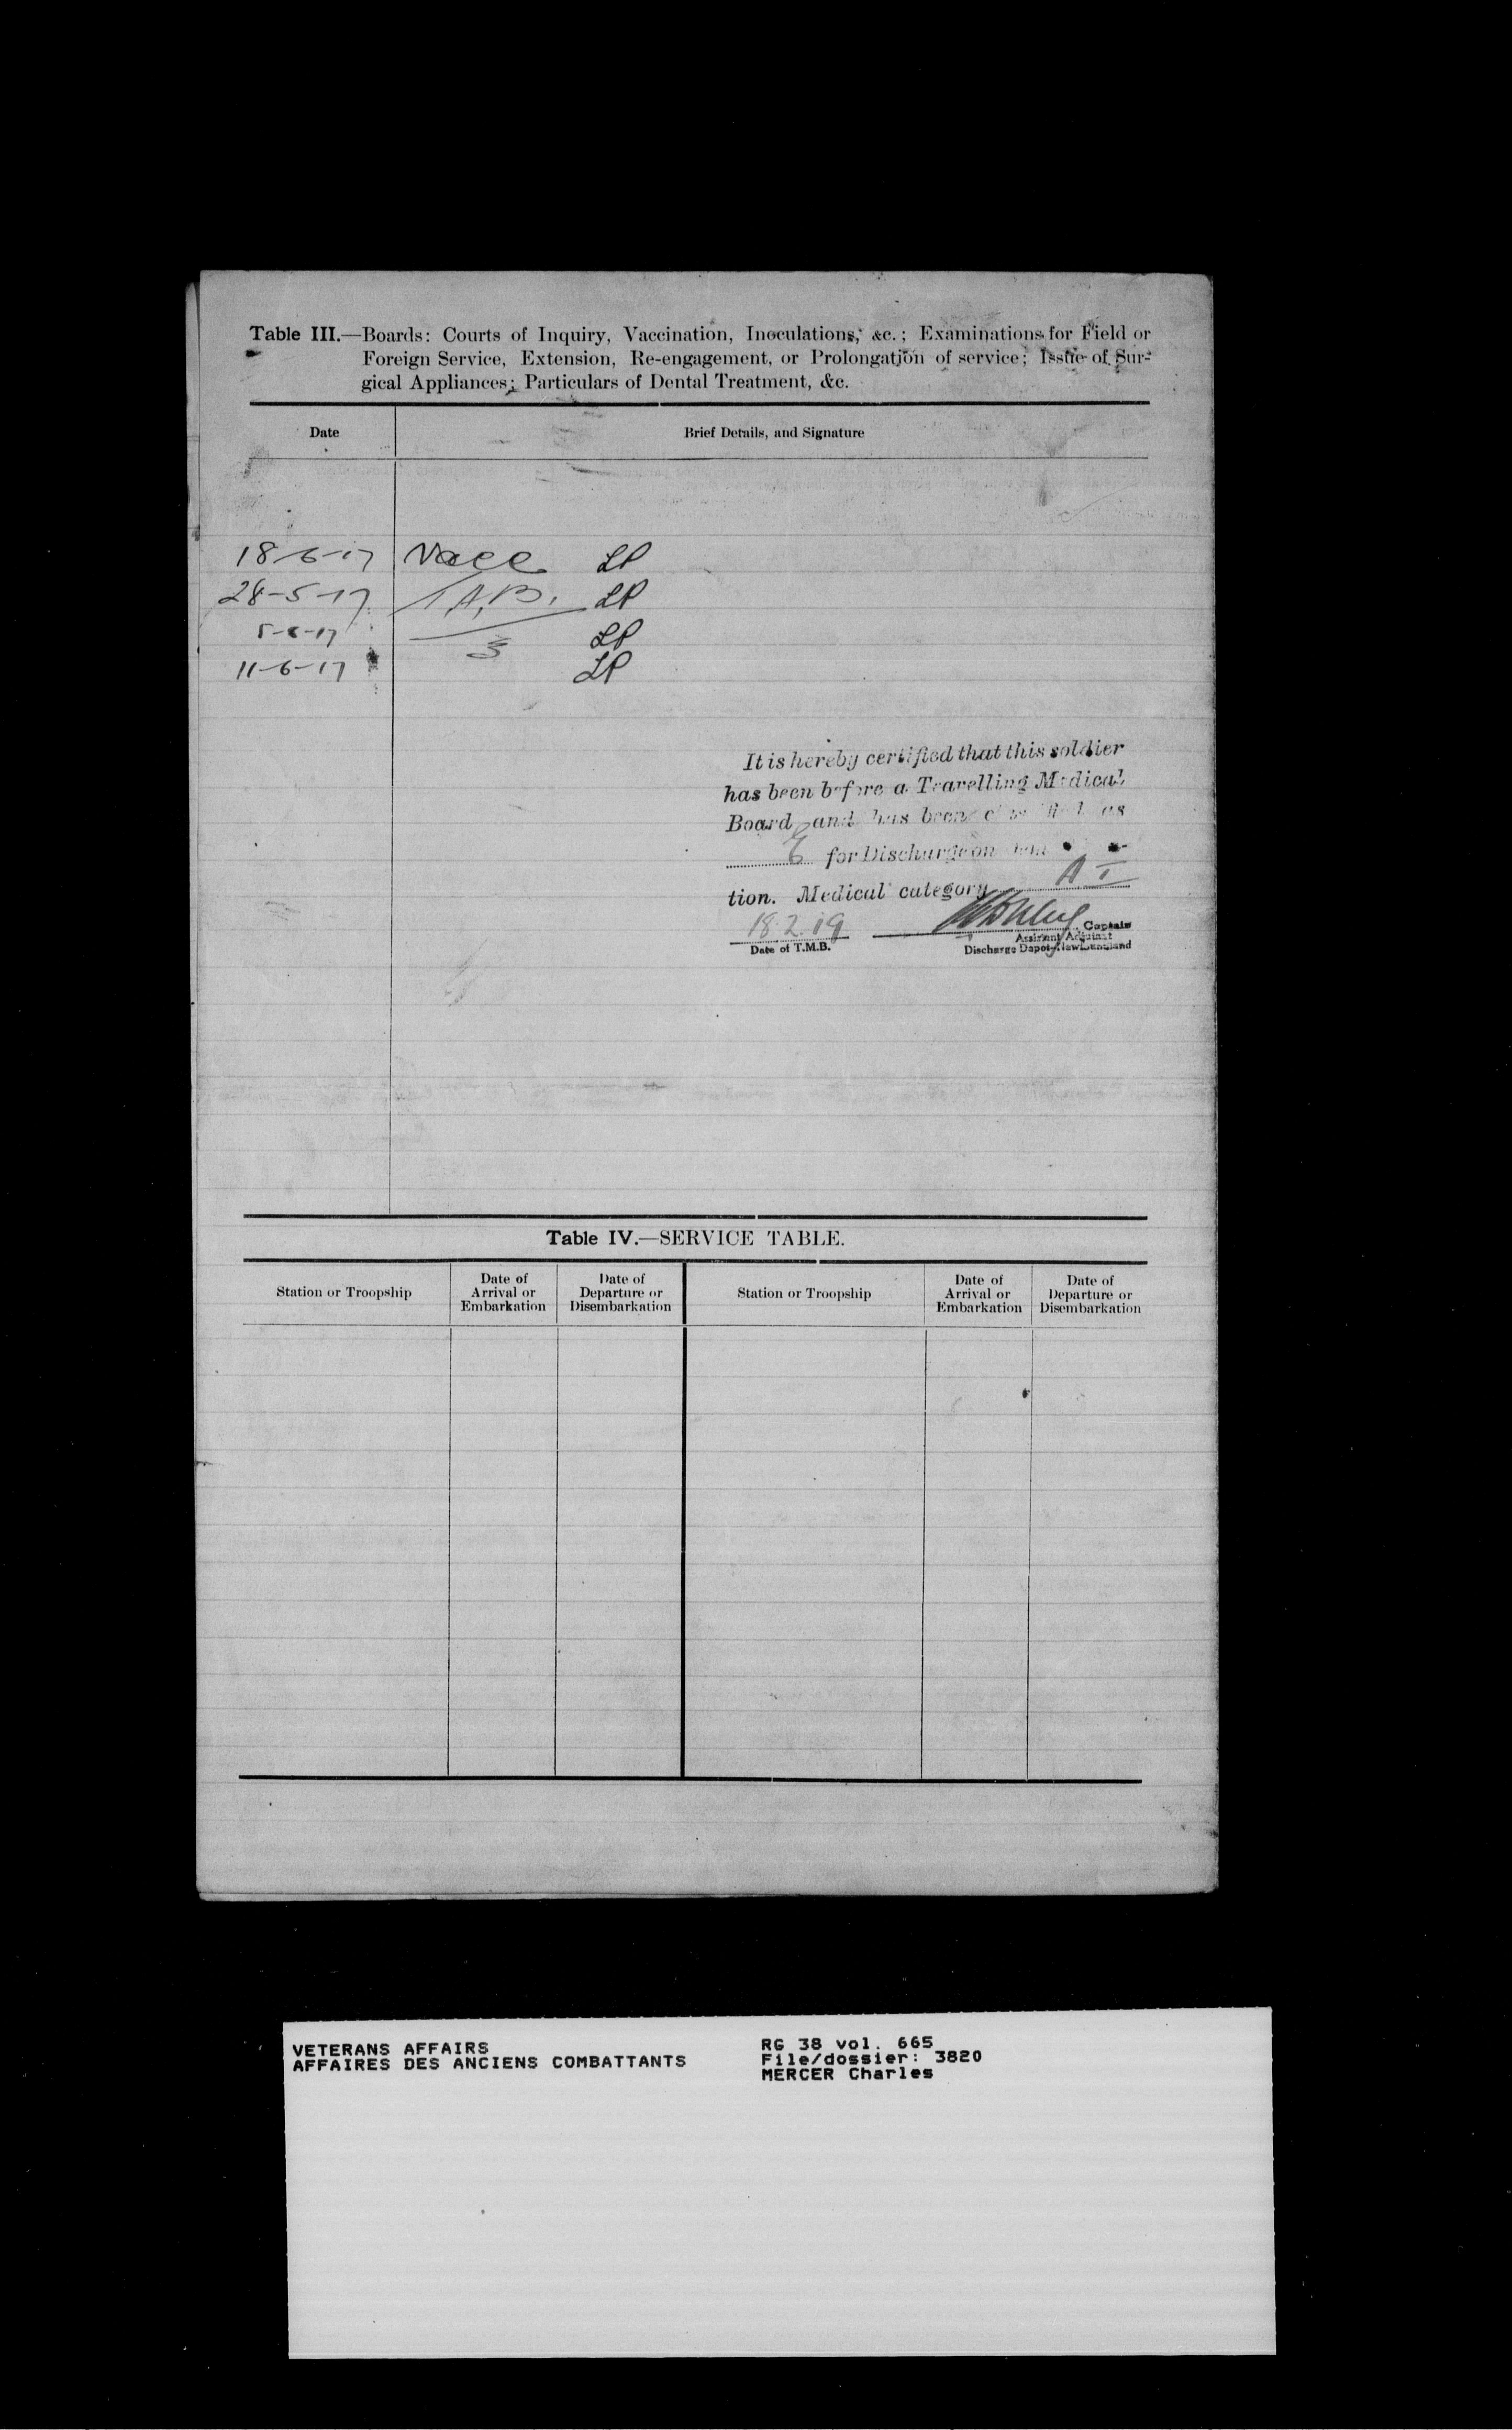 Table III.—Boards: Courts of Inquiry, Vaccination, Inoculations, &c.; Examinations for Field or
Foreign Service, Extension, Re-engagement, or Prolongation of service; Issue of Sur-
gical Appliances; Particulars of Dental Treatment, &c.
Date Brief Details, and Signature
18-6-17 Vacc LP
28-5-17 T.A.B. LP
5-6-17 LP
11-6-17 3 LP
It is hereby certified that this soldier
has been before a Travelling Medical
Board and has been as
E for Discharge on
tion. Medical category A I
18.2.19 Captain
Assistant Adjutant
Date of T.M.B. Discharge Depot Newfoundland
Table IV.—SERVICE TABLE.
Station or Troopship Date of Arrival or Embarkation Date of Departure or Disembarkation Station or Troopship Date of Arrival or Embarkation Date of Departure or Disembarkation
VETERANS AFFAIRS RG 38 vol. 665
AFFAIRES DES ANCIENS COMBATTANTS File/dossier: 3820
MERCER Charles